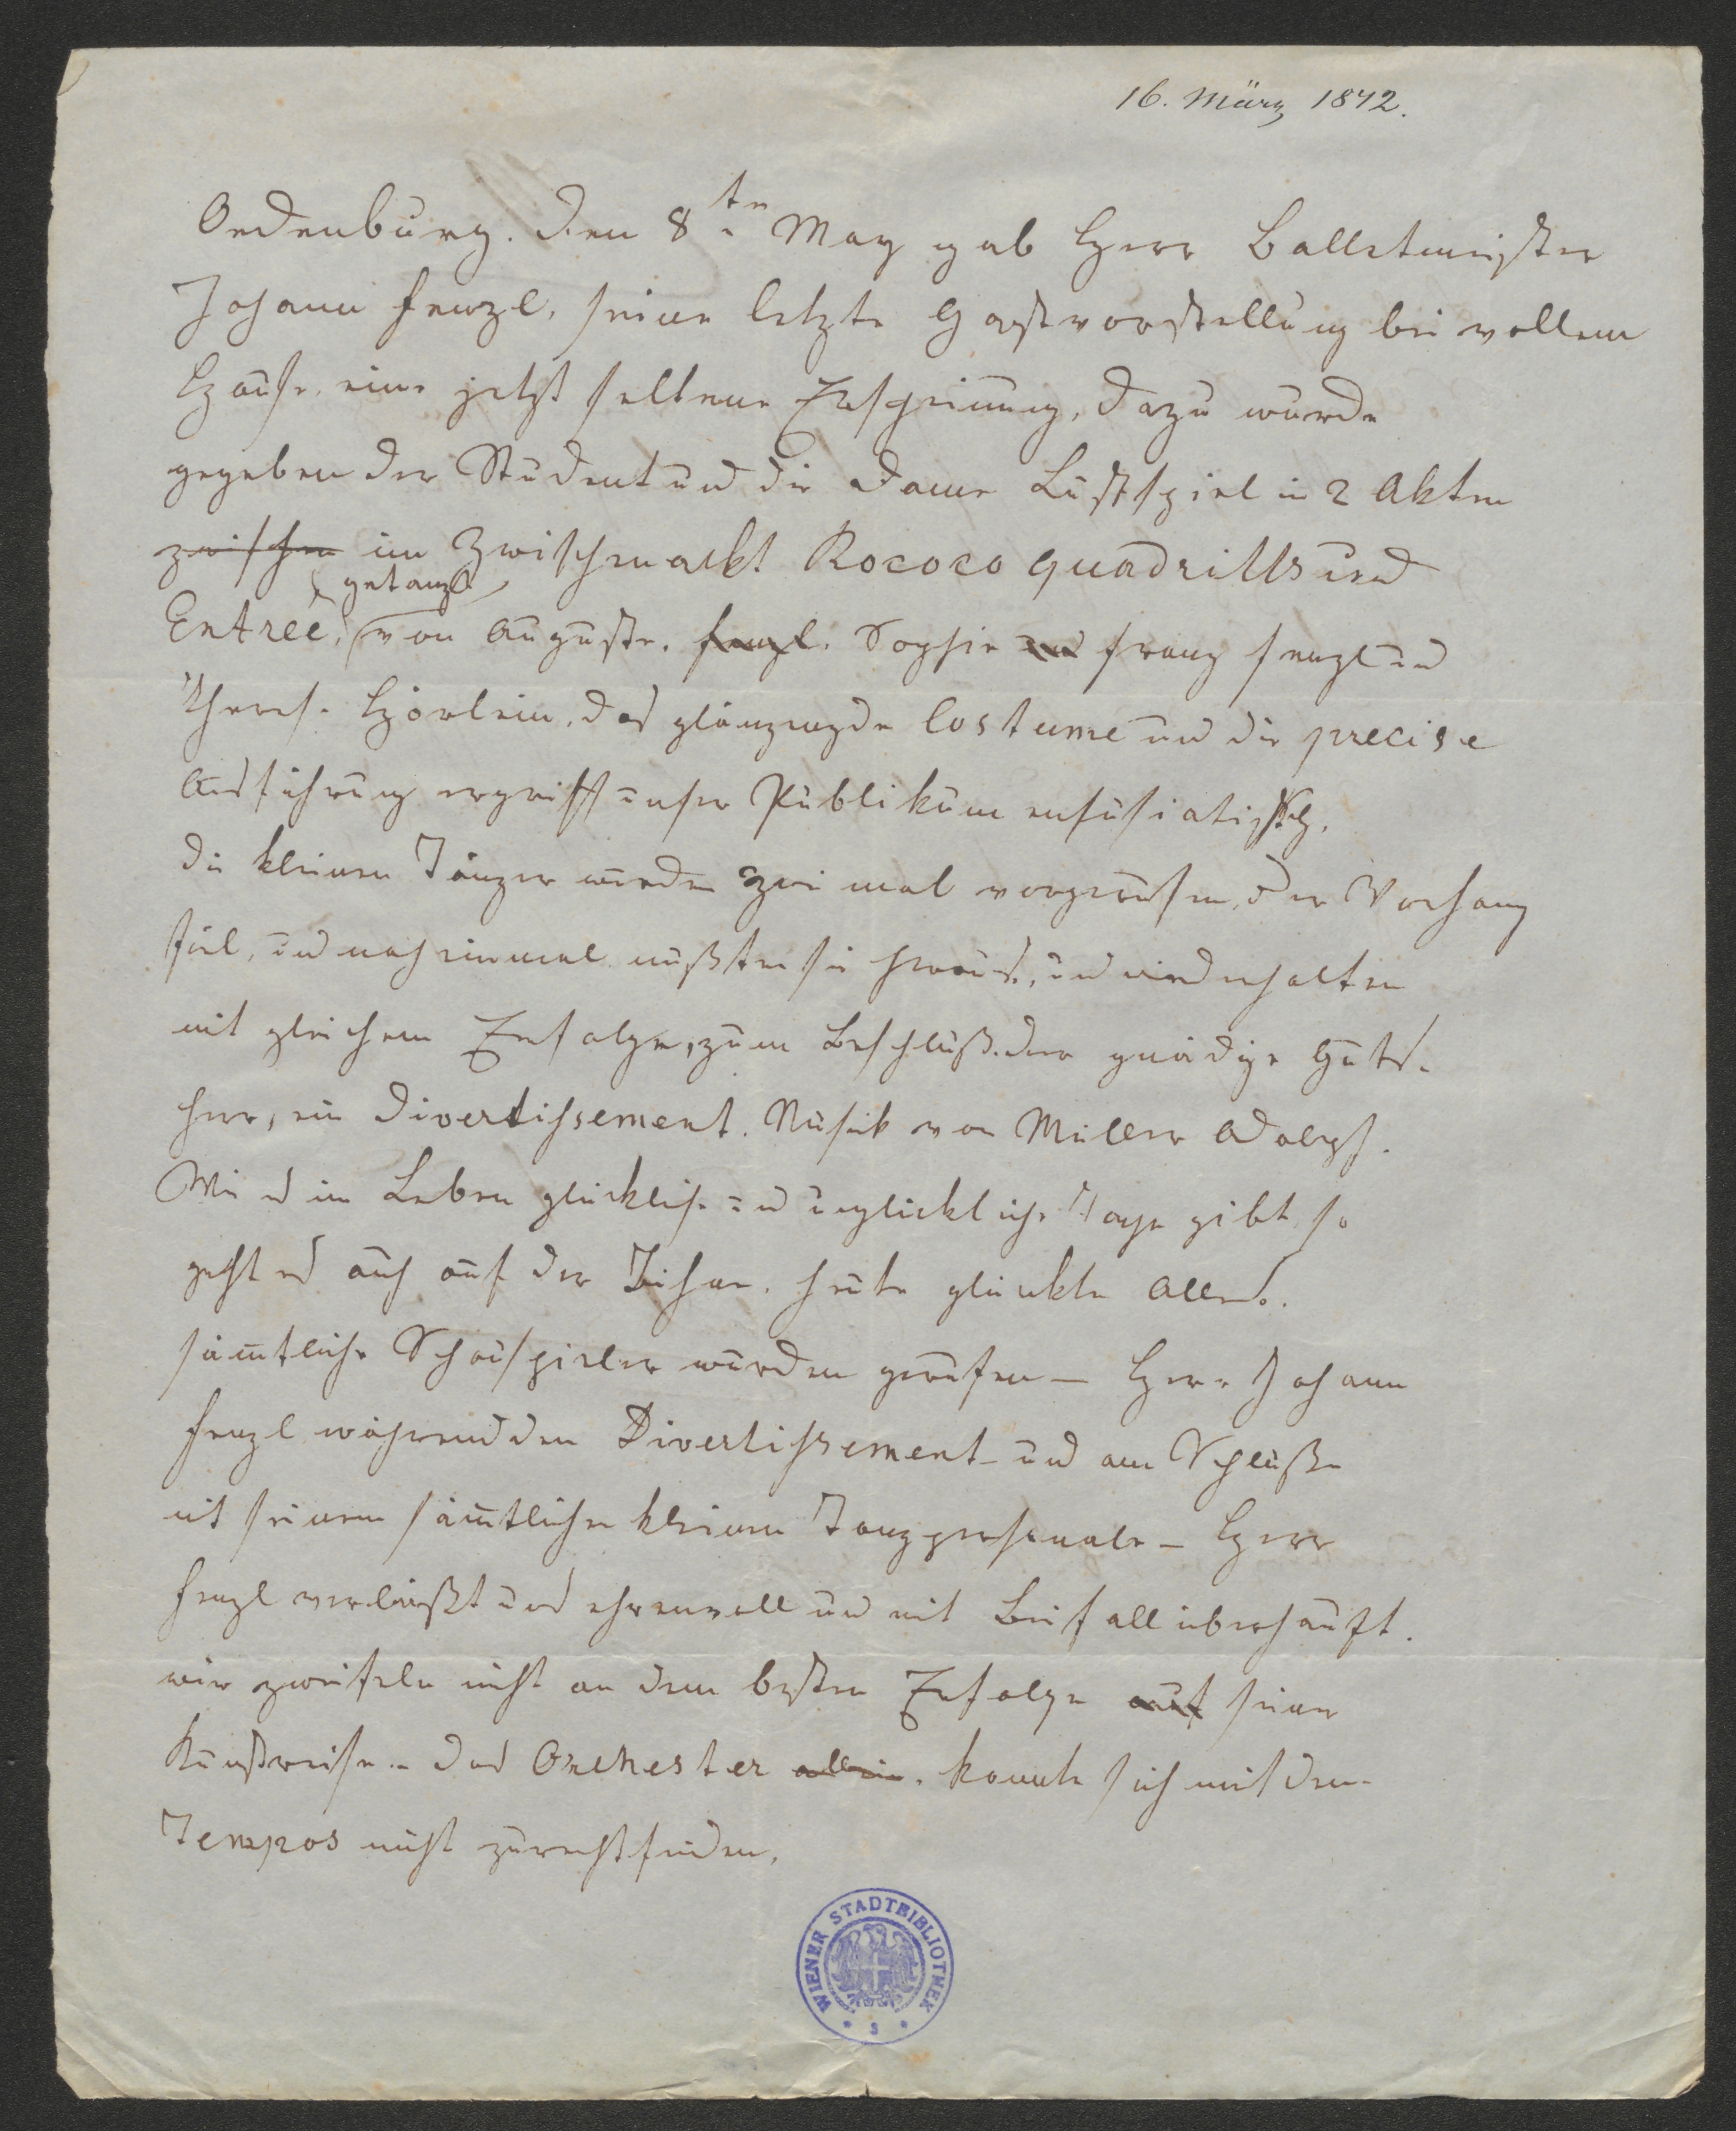 16. März 1842.
Oedenburg. Den 8ten May gab Herr Balletmeister
Johann Fenzl, seine letzte Gastvorstellung bei vollem
Hause, eine jetzt seltene Erscheinung, dazu wurde
gegeben der Student und die Dame Lustspiel in 2 Akten
zwischen im Zwischenackt Rococo quadrills und
getanzt
Entree, von Auguste. Fenzl. Sophie und Franz Fenzl und
Theres. Hörlein, das glänzende Costume und die precise
Ausführung ergriff unser Publikum enthusiatisch,
die kleinen Tänzer wurden zwei mal vorgerufen, der Vorhang
fiel, und noch einmal mußten sie heraus, und wiederholten
mit gleichem Erfolge, zum Beschluß. der gnädige Guts-
herr, ein Divertissement. Musik von Müller Adolph.
Wie es im Leben glückliche und unglückliche Tage gibt so
geht es auch auf der Bühne. heute glückte Alles.
sämtliche Schauspieler wurden gerufen – Herr Johann
Fenzl während den Divertissement – und am Schluße
mit seinem sämtlichen kleinen Tanzpersonale – Herr
Fenzl verläßt uns ehrenvoll und mit Beifall überhäuft.
wir zweifeln nicht an dem besten Erfolge auf seiner
Kunstreise. – Das Orchester allein. konnte sich mit den
Tempos nicht zurechtfinden.
WIENER STADTBIBLIOTHEK
* S *